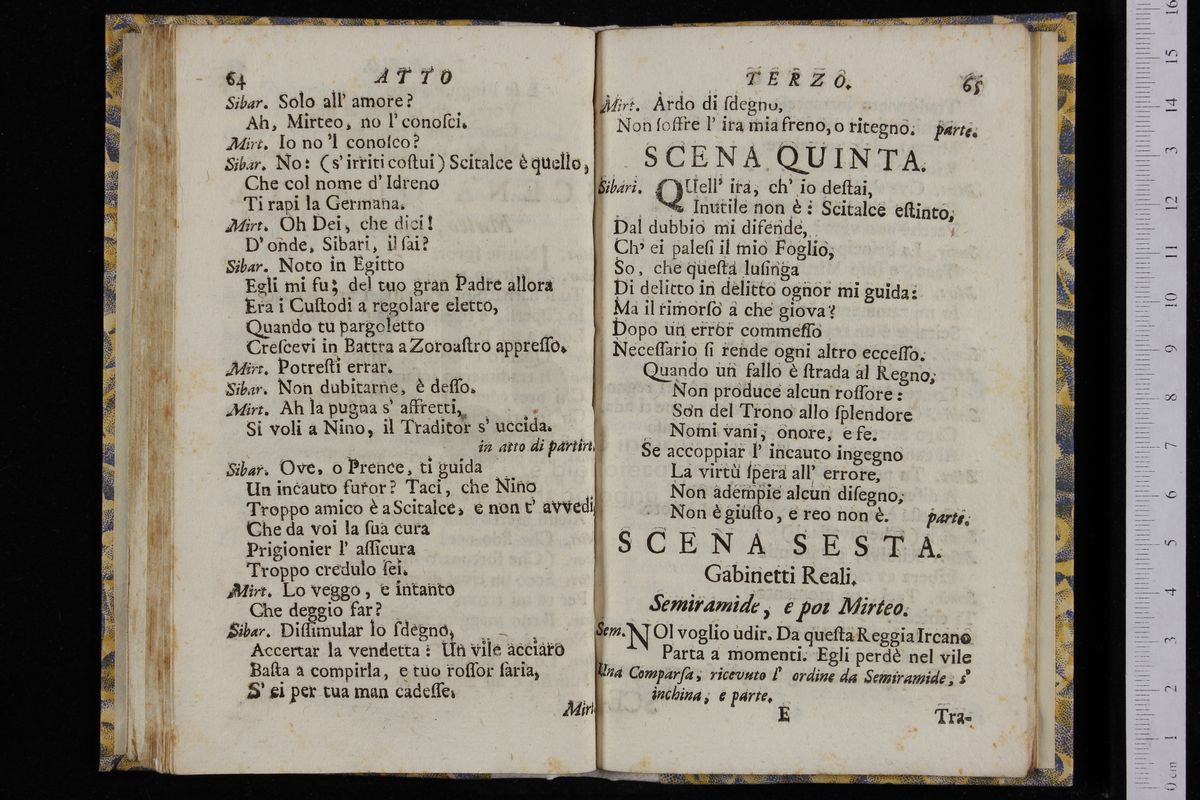 64 ATTO
Sibar. Solo all' amore?
Ah, Mirteo, no l' conoſci.
Mirt. Io no 'l conoſco?
Sibar. No: (s' irriti coſtui) Scitalce è quello,
Che col nome d' Idreno
Ti rapì la Germana.
Mirt. Oh Dei, che dici!
D' onde, Sibari, il ſai?
Sibar. Noto in Egitto
Egli mi fu; del tuo gran Padre allora
Era i Cuſtodi a regolare eletto,
Quando tu pargoletto
Creſcevi in Battra a Zoroaſtro appreſſo.
Mirt. Potreſti errar.
Sibar. Non dubitarne, è deſſo.
Mirt. Ah la pugna s' affretti,
Si voli a Nino, il Traditor s' uccida.
in atto di partire
Sibar. Ove, o Prence, ti guida
Un incauto furor? Taci, che Nino
Troppo amico è a Scitalce, e non t' avvedi
Che da voi la ſua cura
Prigionier l' aſſicura
Troppo credulo ſei.
Mirt. Lo veggo, e intanto
Che deggio far?
Sibar. Diſſimular lo ſdegno,
Accertar la vendetta: Un vile acciaro
Baſta a compirla, e tuo roſſor ſaria,
S' ei per tua man cadeſſe.
Mirt
TERZO. 65
Mirt. Ardo di ſdegno,
Non ſoffre l' ira mia freno, o ritegno. parte.
SCENA QUINTA.
Sibari. QUell' ira, ch' io deſtai,
Inutile non è: Scitalce eſtinto,
Dal dubbio mi difende,
Ch' ei paleſi il mio Foglio,
So, che queſta luſinga
Di delitto in delitto ognor mi guida:
Ma il rimorſo a che giova?
Dopo un error commeſſo
Neceſſario ſi rende ogni altro ecceſſo.
Quando un fallo è ſtrada al Regno,
Non produce alcun roſſore:
Son del Trono allo ſplendore
Nomi vani, onore, e fe.
Se accoppiar l' incauto ingegno
La virtù ſpera all' errore,
Non adempie alcun diſegno,
Non è giuſto, e reo non è. parte.
SCENA SESTA.
Gabinetti Reali.
Semiramide, e poi Mirteo.
Sem. NOl voglio udir. Da queſta Reggia Ircano
Parta a momenti. Egli perdè nel vile
Una Comparſa, ricevuto l' ordine da Semiramide, s'
inchina, e parte.
E Tra-